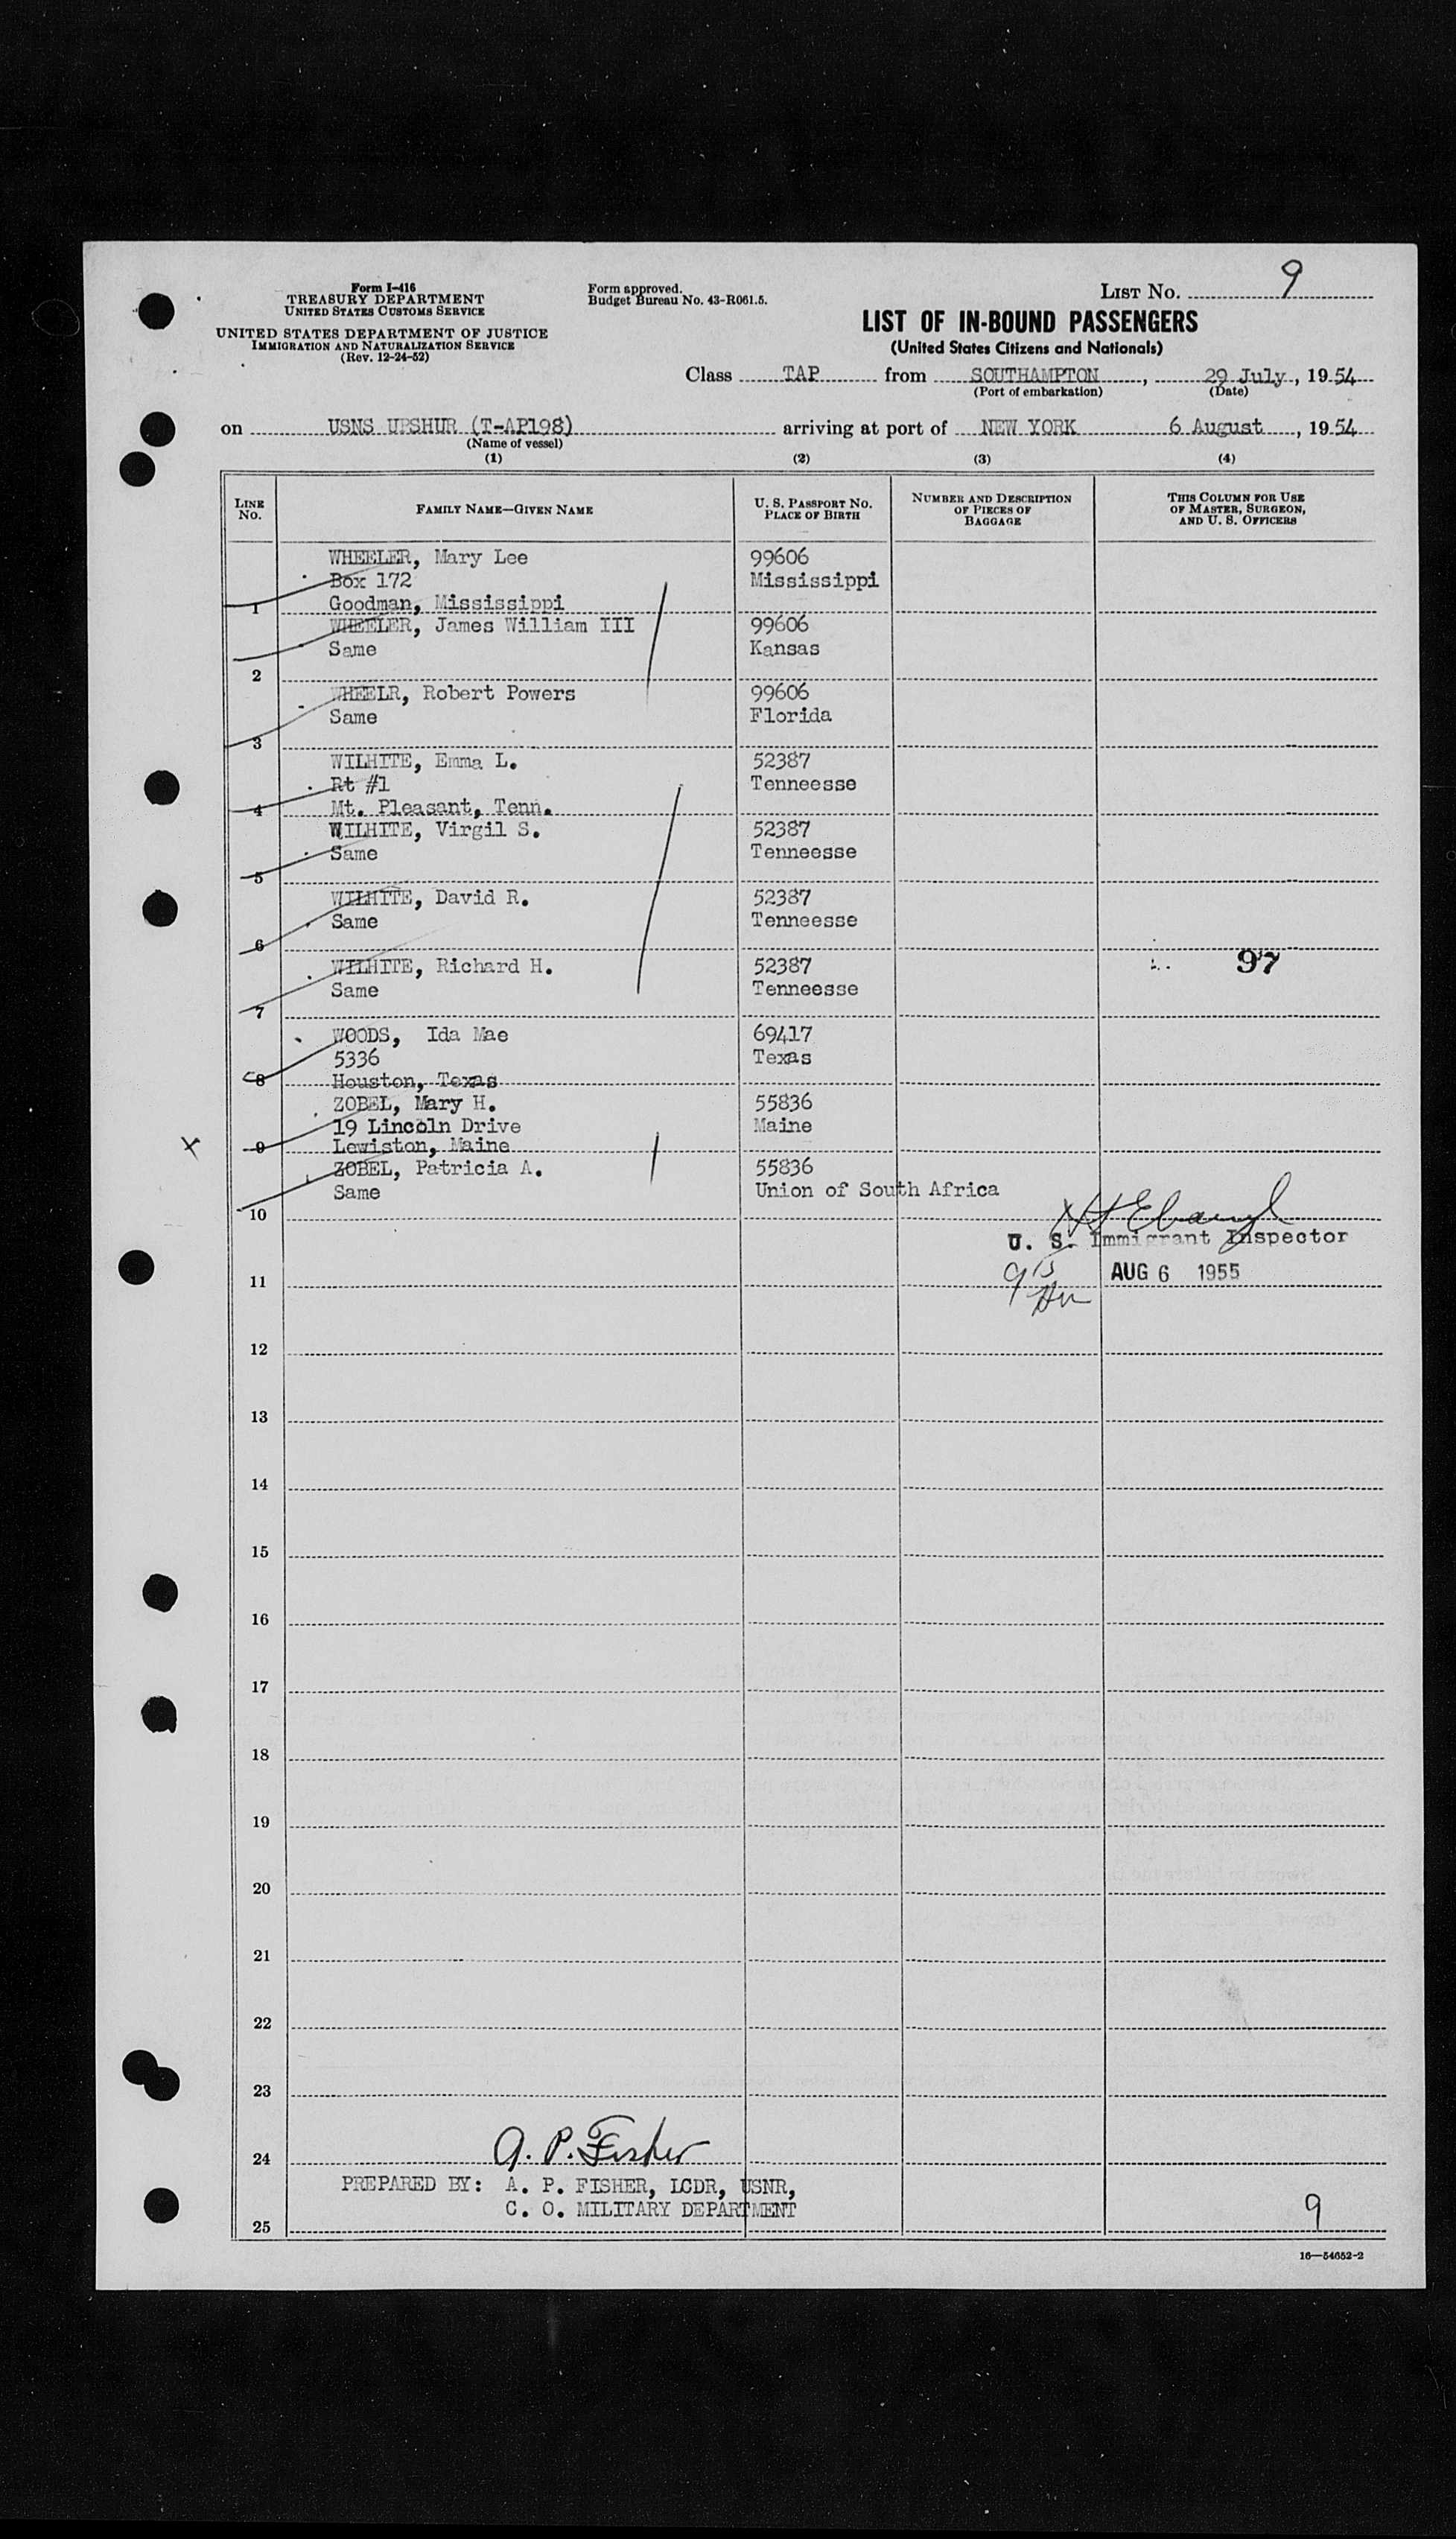 Form I-416
TREASURY DEPARTMENT
UNITED STATES CUSTOMS SERVICE
UNITED STATES DEPARTMENT OF JUSTICE
IMMIGRATION AND NATURALIZATION SERVICE
(Rev. 12-24-52)
Form approved.
Budget Bureau No. 43-R061.5.
LIST NO. 9
LIST OF IN-BOUND PASSENGERS
(United States Citizens and Nationals)
Class TAP from SOUTHAMPTON, 29 July, 1954
(Port of embarkation) (Date)
on USNS UPSHUR (T-AP198) arriving at port of NEW YORK 6 August, 1954
(Name of vessel)
(1) (2) (3) (4)
LINE NO. FAMILY NAME—GIVEN NAME U. S. PASSPORT NO. PLACE OF BIRTH NUMBER AND DESCRIPTION OF PIECES OF BAGGAGE THIS COLUMN FOR USE OF MASTER, SURGEON, AND U. S. OFFICERS
WHEELER, Mary Lee 99606
Box 172 Mississippi
1 Goodman, Mississippi
WHEELER, James William III 99606
Same Kansas
2
WHEELR, Robert Powers 99606
Same Florida
3
WILHITE, Emma L. 52387
Rt #1 Tenneesse
4 Mt. Pleasant, Tenn.
WILHITE, Virgil S. 52387
Same Tenneesse
5
WILHITE, David R. 52387
Same Tenneesse
6
WILHITE, Richard H. 52387 97
Same Tenneesse
7
WOODS, Ida Mae 69417
5336 Texas
8 Houston, Texas
ZOBEL, Mary H. 55836
19 Lincoln Drive Maine
x 9 Lewiston, Maine
ZOBEL, Patricia A. 55836
Same Union of South Africa
10
U. S. Immigrant Inspector
11 AUG 6 1955
12
13
14
15
16
17
18
19
20
21
22
23
24 A. P. Fisher
PREPARED BY: A. P. FISHER, LCDR, USNR,
C. O. MILITARY DEPARTMENT 9
25
16—54652-2